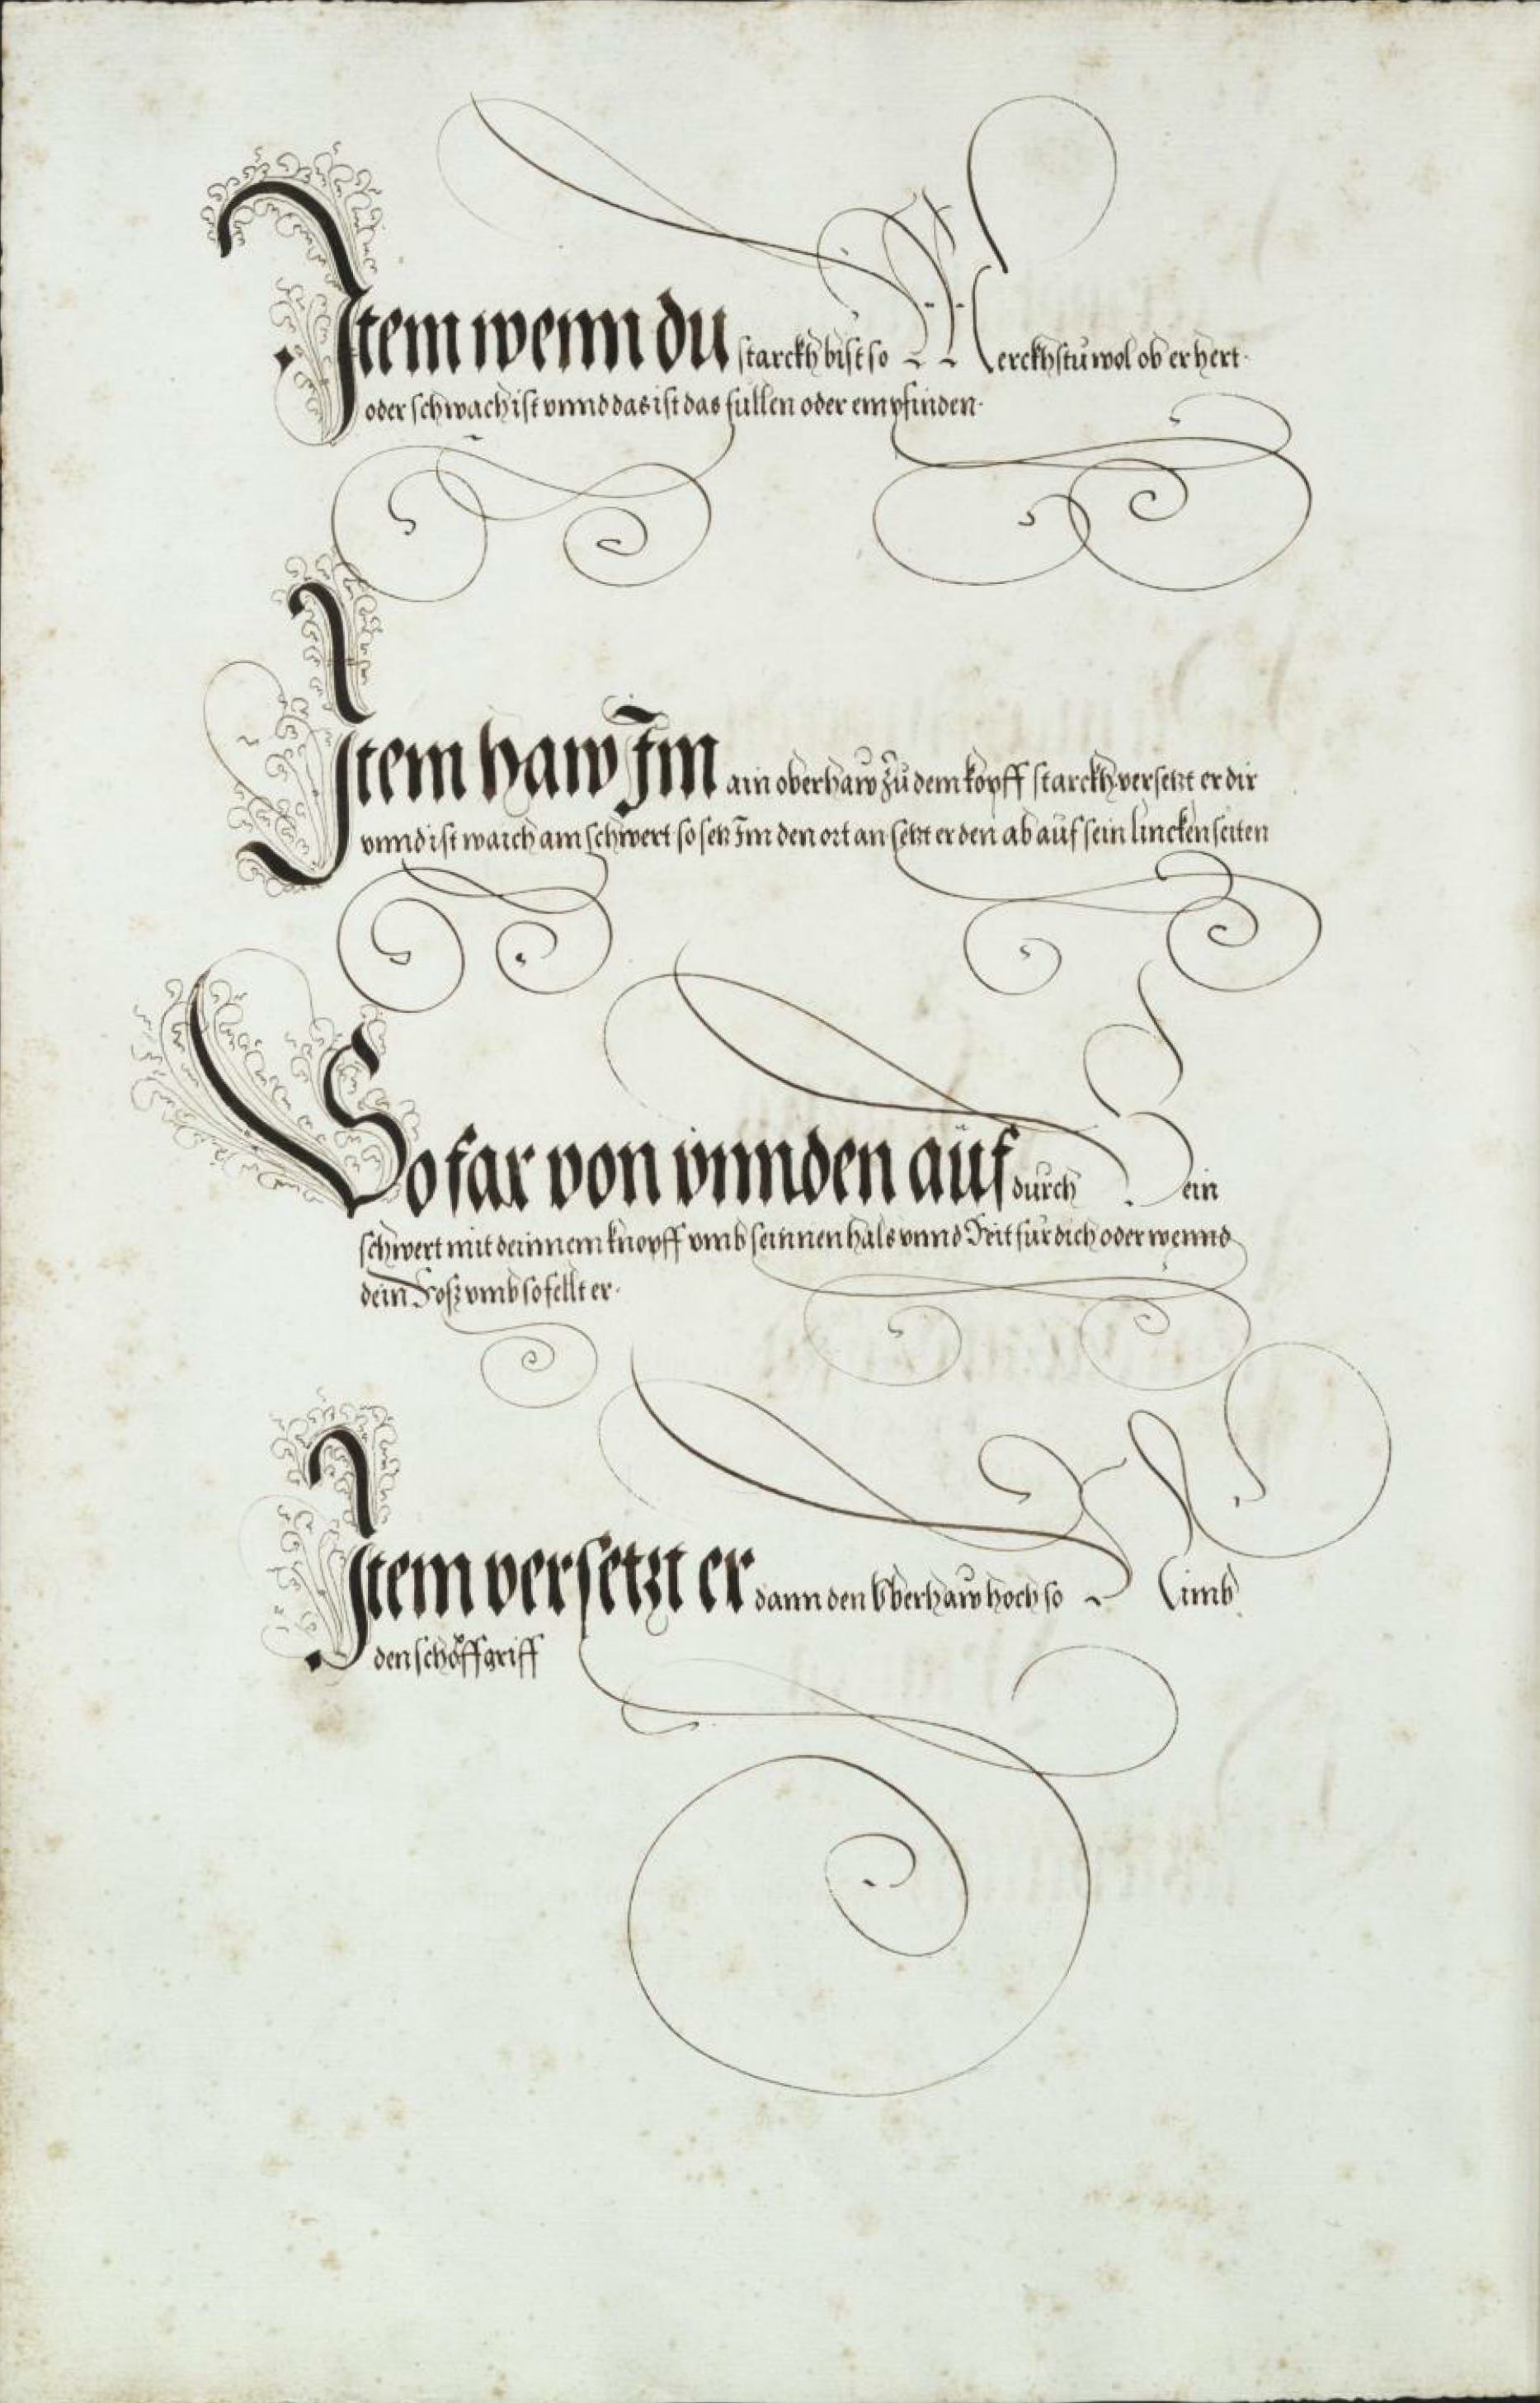 Item wenn du starckh bist so Merckhstu wol ob er hert
oder schwach ist vnnd das ist das fullen oder empfinden
Item haw Im ain oberhaw zů dem kopff starckh versetzt er dir
vnnd ist waich am schwert so setz Im den ort an setzt er den ab auf sein lincken seiten
So far von vnnden auf durch Sein
schwert mit deinnem knopff vmb seinnen hals vnnd Trit für dich oder wennd
dein vmb so fellt er
Item versetzt er dann den Oberhaw hoch so Nimb
den griff